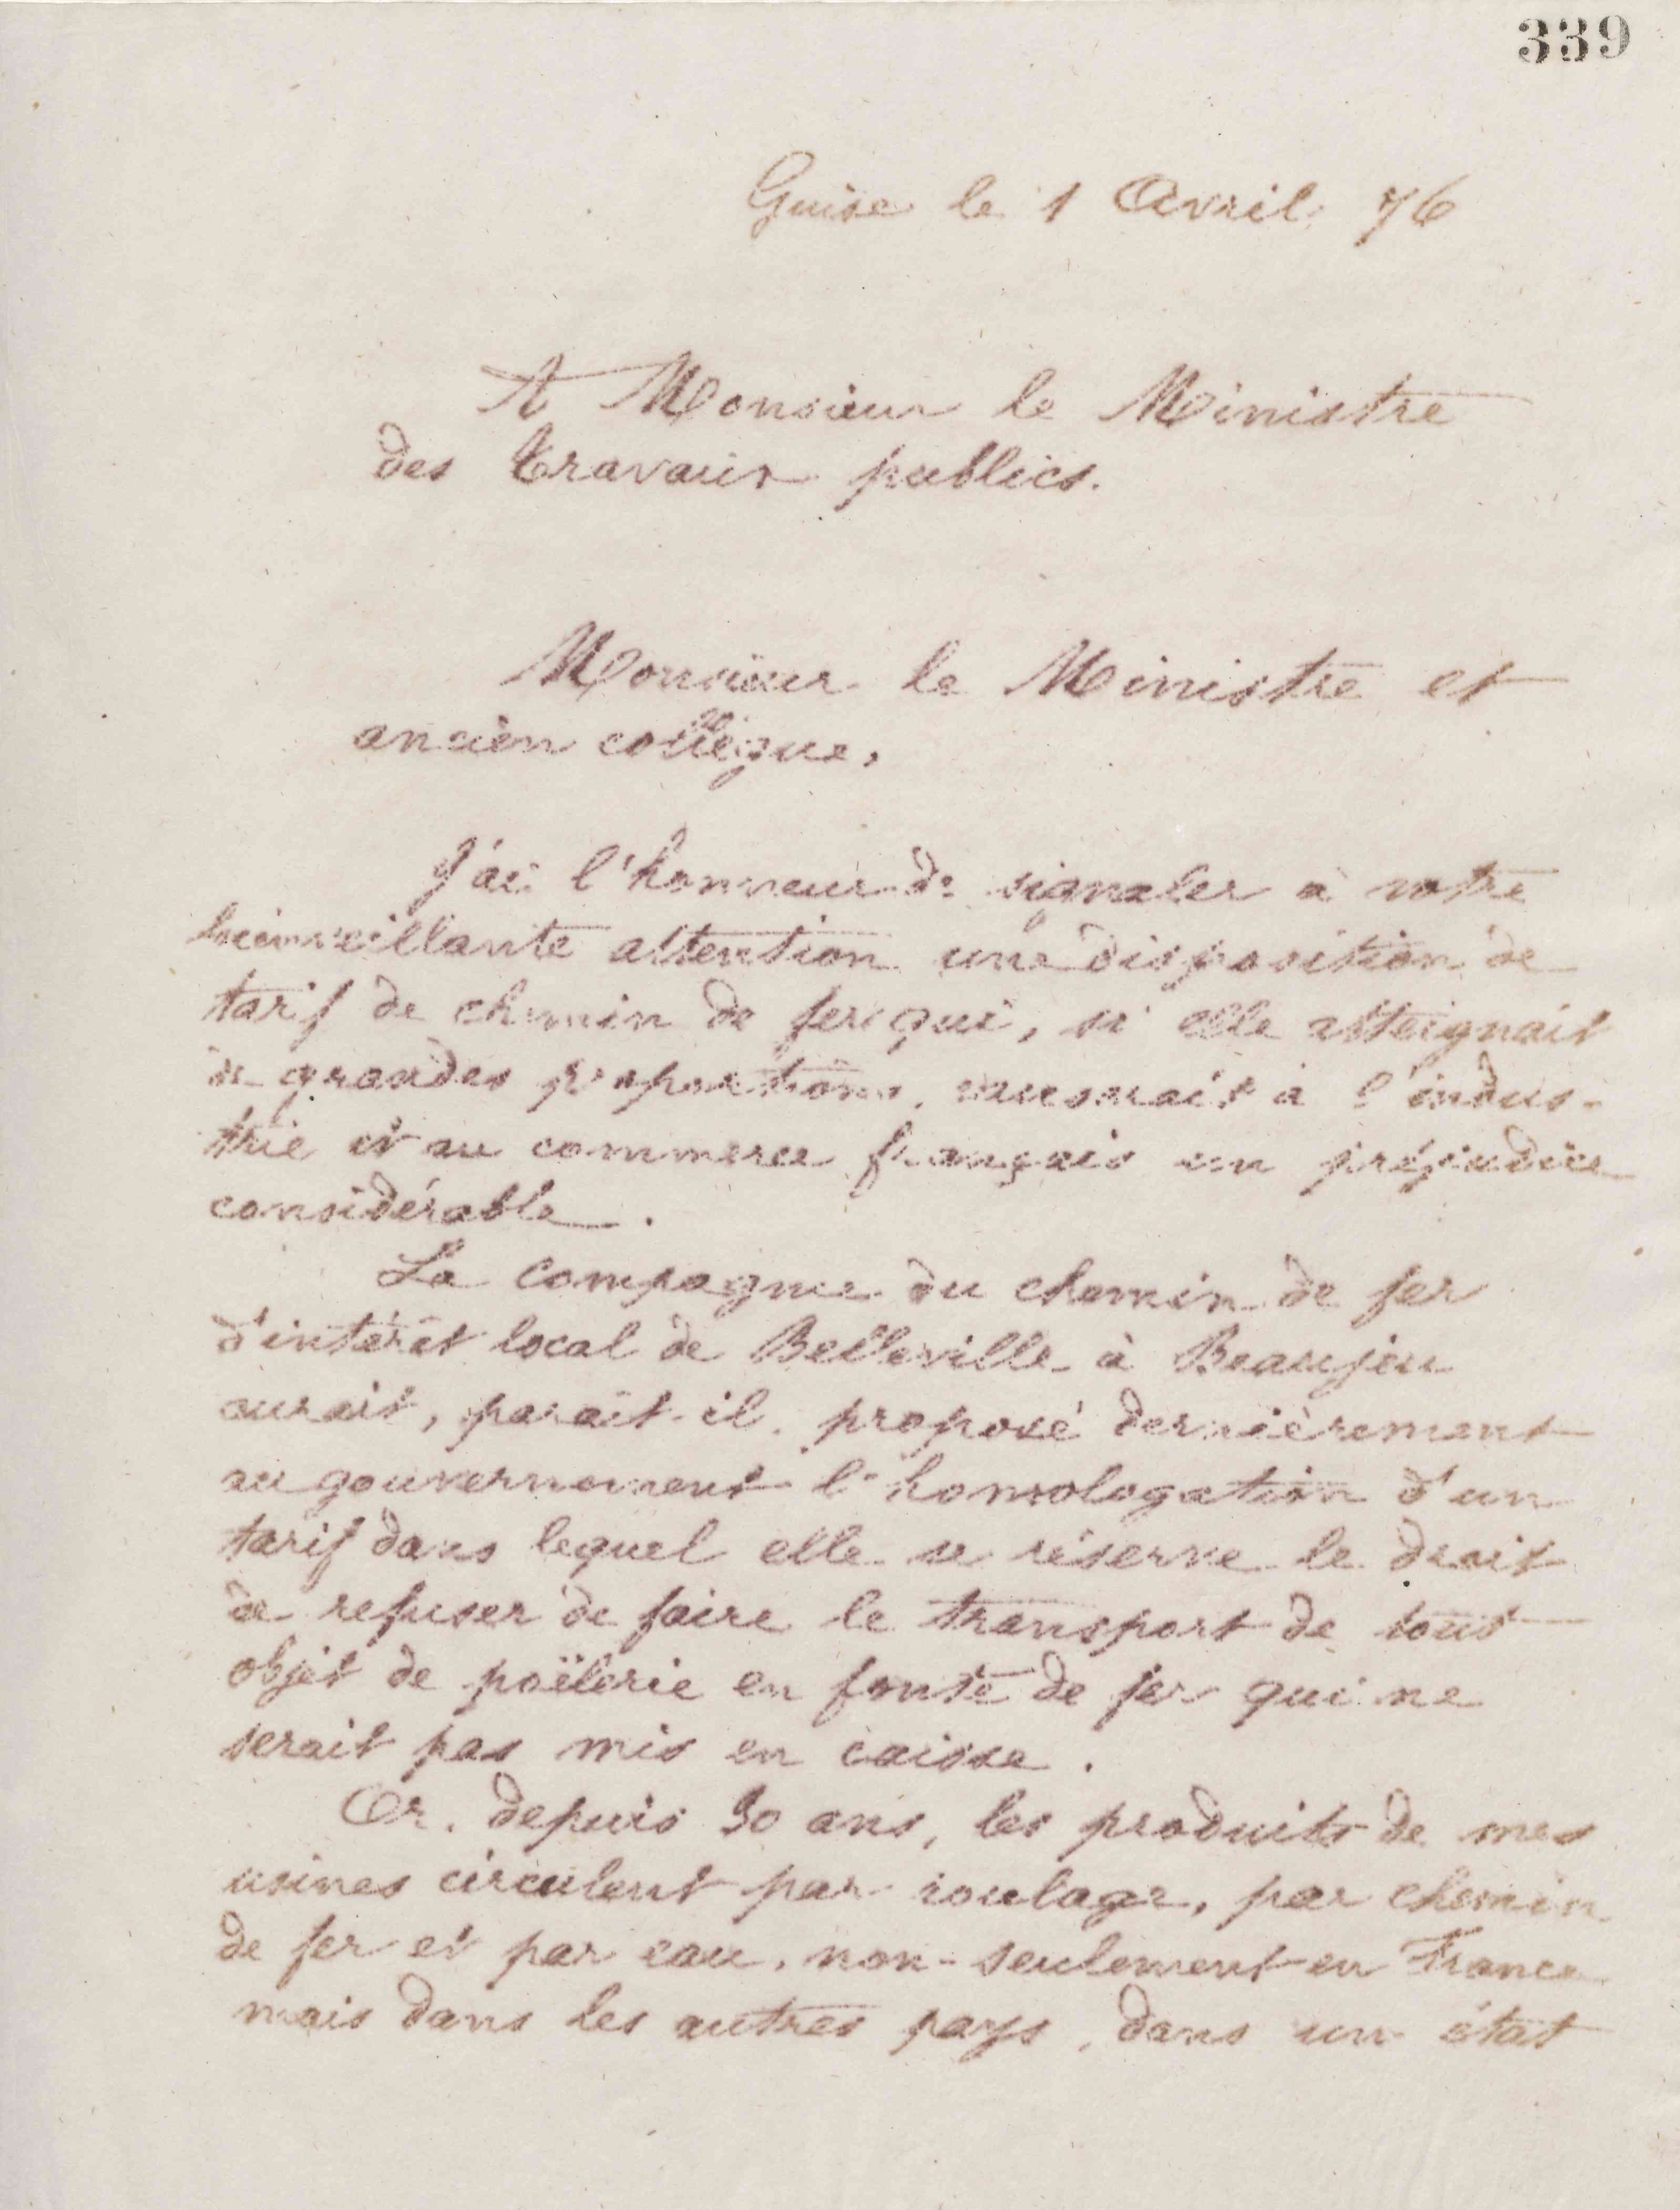 339
Guise le 1 Avril 76
A Monsieur le Ministre
des Travaux publics.
Monsieur le Ministre et
ancien collègue,
J'ai l'honneur de signaler à votre
bienveillante attention une disposition de
tarif de chemin de fer qui, si elle atteignait
de grandes proportions, causerait à l'indus-
trie et au commerce français un préjudice
considérable.
La Compagnie du chemin de fer
d'intérêt local de Belleville à Beaujeu
aurait, paraît-il, proposé dernièrement
au gouvernement l'homologation d'un
tarif dans lequel elle se réserve le droit
de refuser de faire le transport de tout
objet de poëlerie en fonte de fer qui ne
serait pas mis en caisse.
Or, depuis 30 ans, les produits de mes
usines circulent par roulage, par chemin
de fer et par eau, non-seulement en France
mais dans les autres pays, dans un état